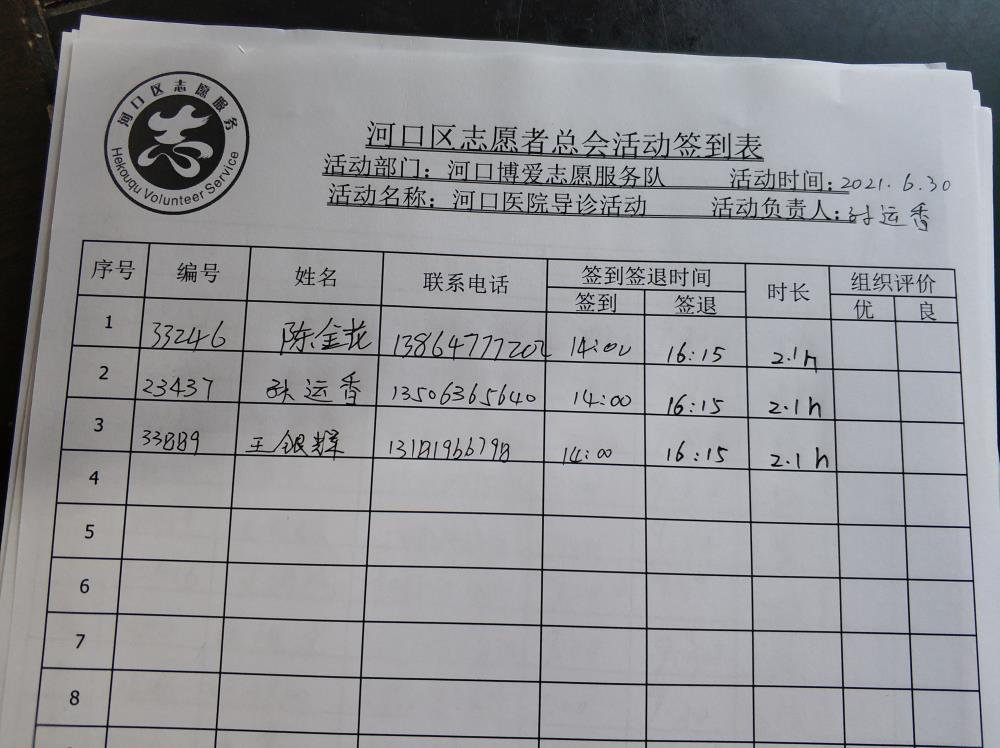 河口区志愿服务
志
Hekouqu Volunteer Service
河口区志愿者总会活动签到表
活动部门：河口博爱志愿服务队 活动时间：2021.6.30
活动名称：河口医院导诊活动 活动负责人：孙运香
序号 编号 姓名 联系电话 签到签退时间 时长 组织评价
签到 签退 优 良
1 33246 陈金花 13864777202 14:00 16:15 2.1h
2 23437 孙运香 13506365640 14:00 16:15 2.1h
3 33889 王银辉 13181966798 14:00 16:15 2.1h
4
5
6
7
8